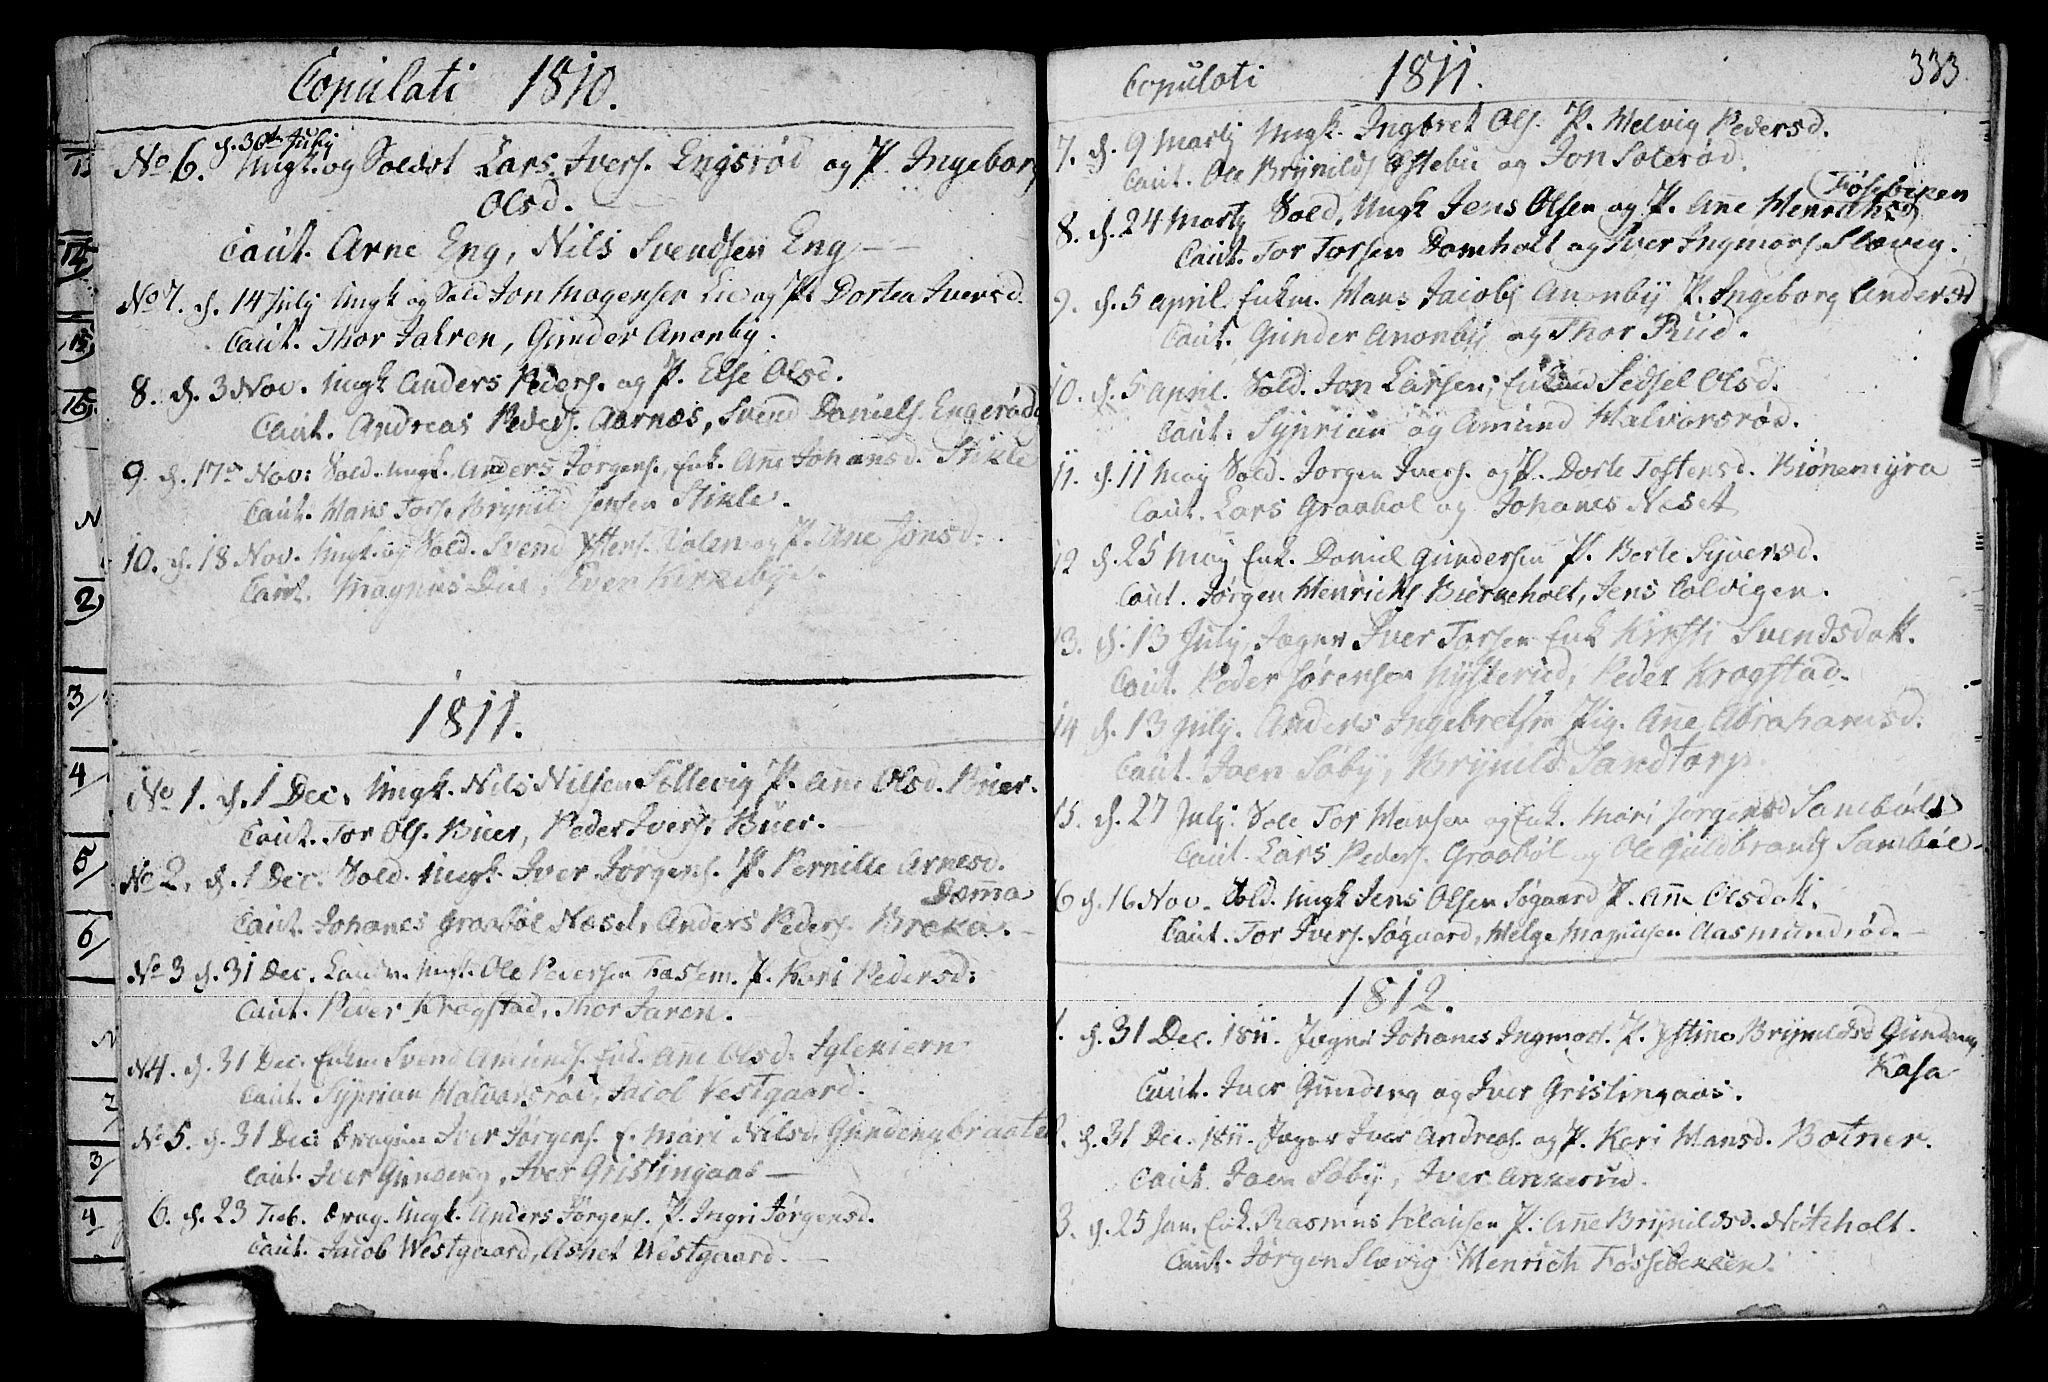 Copulati 1810.
No 6. d. 30te July Ungk. og Soldat Lars Ivers. Engsrød og P. Ingeborg
Olsd.
Caut. Arne Eng, Nils Svendsen Eng
No 7. d. 14 July Ungk og Sold Jon Mogensen Lie og P. Dortea Iversd.
Caut. Thor Jahren, Gunder Anonby.
8. d. 3 Nov. Ungk Anders Peders. og P. Else Olsd.
Caut. Andreas Peders. Aarnæs, Svend Daniels. Engerød
9. d. 17de Nov: Sold. Ungk. Anders Jørgens., Enk. Anne Johansd. Stikle
Caut. Hans Tors. Brynild Jensen Stikle.
10. d. 18 Nov. Ungk. og Sold. Svend Ystens. Dalen og P. Ane Jonsd.
Caut. Magnus Due, Even Kirkebye.
1811.
No 1. d. 1 Dec. Ungk. Nils Nilsen Sollevig P. Anne Olsd. Buer.
Caut. Tor Ols. Buer, Peder Ivers. Buer.
No 2. d. 1 Dec. Sold. Ungk. Iver Jørgens. P. Pernille Arnesd.
Damma
Caut. Johanes Graabøl Næset, Anders Peders. Breka.
No 3 d. 31 Dec. Ungk. Ole Pedersen P. Kari Pedersd:
Caut. Peder Krogstad, Thor Jaren.
N 4. d. 31 Dec. Enkm Svend Amunds. Enk. Ane Olsd. Iglekiern
Caut. Syprian Halvorsrød, Jacob Vestgaard.
No 5. d. 31 Dec: Dragun Iver Jørgens. E. Mari Nilsd. Gundengbraaten
Caut. Iver Gundeng, Iver Gristingaas
6. d. 23 Feb. Drag. Ungk. Anders Jørgens. P. Ingri Jørgensd.
Caut. Jacob Westgaard, Ashel Westgaard.
Copulati 1811. 333.
7. d. 9 Martj Ungk. Ingbret Ols. P. Helvig Pedersd.
Caut. Ole Brynilds Østebu og Jon Solerød.
8. d. 24 Martj Sold. Ungk Jens Olsen og P. Anne Henrichsd (Føsebeken
Caut. Tor Torsen Domholt og Iver Ingmors. Slævig.
9. d. 5 April. Enkm. Hans Jacobs Anonby P. Ingeborg Andersd
Caut. Gunder Anonby og Thor Rud.
10. d. 5 April. Sold. Jon Larsen, Enk. Sidsel Olsd.
Caut. Syprian og Amund Halvorsrød.
11. d. 11 May Sold. Jørgen Ivers. og P. Dorte Tostensd. Biønemyra
Caut. Lars Graabøl og Johanes Næset
12 d. 25 May Enk. Daniel Gundersen P. Berte Syversd.
Caut. Jørgen Henrichs Bierkeholt, Jens Colvigen.
13. d. 13 July, Jæger Iver Torsen Enk Kirsti Svendsdatt.
Caut. Peder Sørensen Hysterud, Peder Krogstad.
14 d. 13 July. Anders Ingebretsen Pig. Anne Abrahamsd.
Caut. Joen Søby, Brynild Sandtorp.
15. d. 27 July: Sold Tor Hansen og Enk. Mari Jørgensd Sambøl
Caut. Lars Peders. Graabøl og Ole Guldbrands Sambøl
6 d. 16 Nov. Sold. Ungk Jens Olsen Søgaard P. Anne Olsdatt.
Caut. Tor Ivers. Søgaard, Helge Magnusen Aasmundrød.
1812.
1. d. 31 Dec. 1811. Jæger Johanes Ingmors. P. Ystine Brynildsd Gundeng
Kasa
Caut. Iver Gundeng og Iver Gristingaas.
2. d. 31 Dec. 1811. Jæger Iver Andreas. og P. Kari Hansd. Botner.
Caut. Joen Søby, Iver Ankerud.
3. d. 25 Jan. Enk. Rasmus Klausen P. Anne Brynildsd. Nøteholt.
Caut. Jørgen Slævig Henrich Føssebekken.